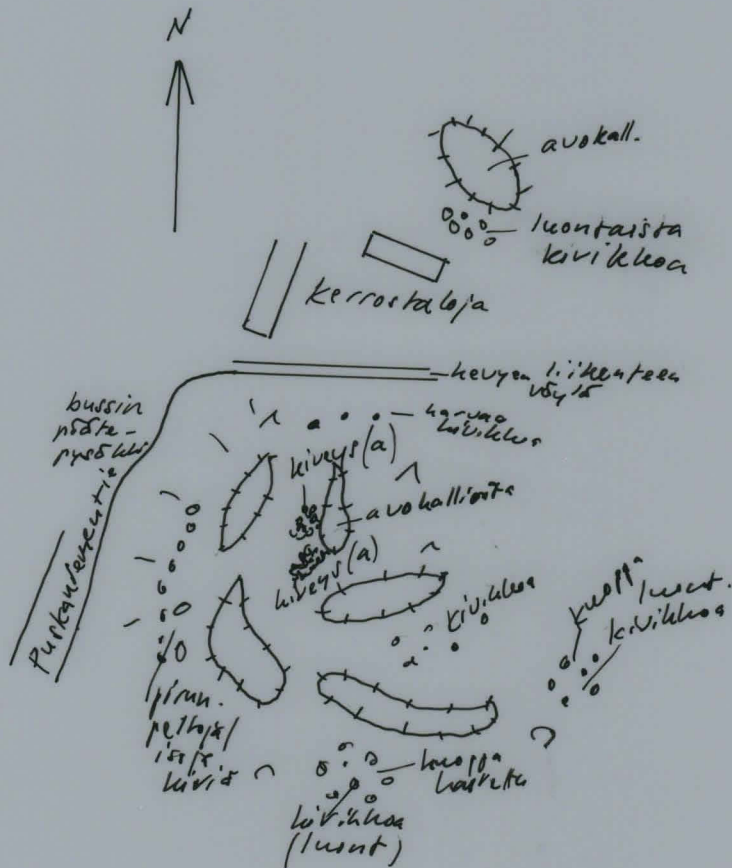 N
avokall.
luontaista
kivikkoa
kerrostaloja
kevyen liikenteen
väylä
bussin
pääte-
pysäkki
harvaa
kivikkoa
kiveys (a)
avokalliota
kiveys (a)
kivikkoa
kuoppa
luont.
kivikkoa
pirun.
peltoja/
isoja
kiviä
kuoppa
kivikkoa
(luont)